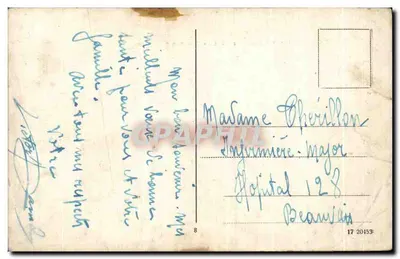 Mon bon souvenir. Mes
meilleurs voeux de bonne
santé pour vous et votre
famille.
Avec tous mes respects
Votre
Madame Thérillon
Infirmière-Major
Hôpital 128
Beauvais
8
17 20453